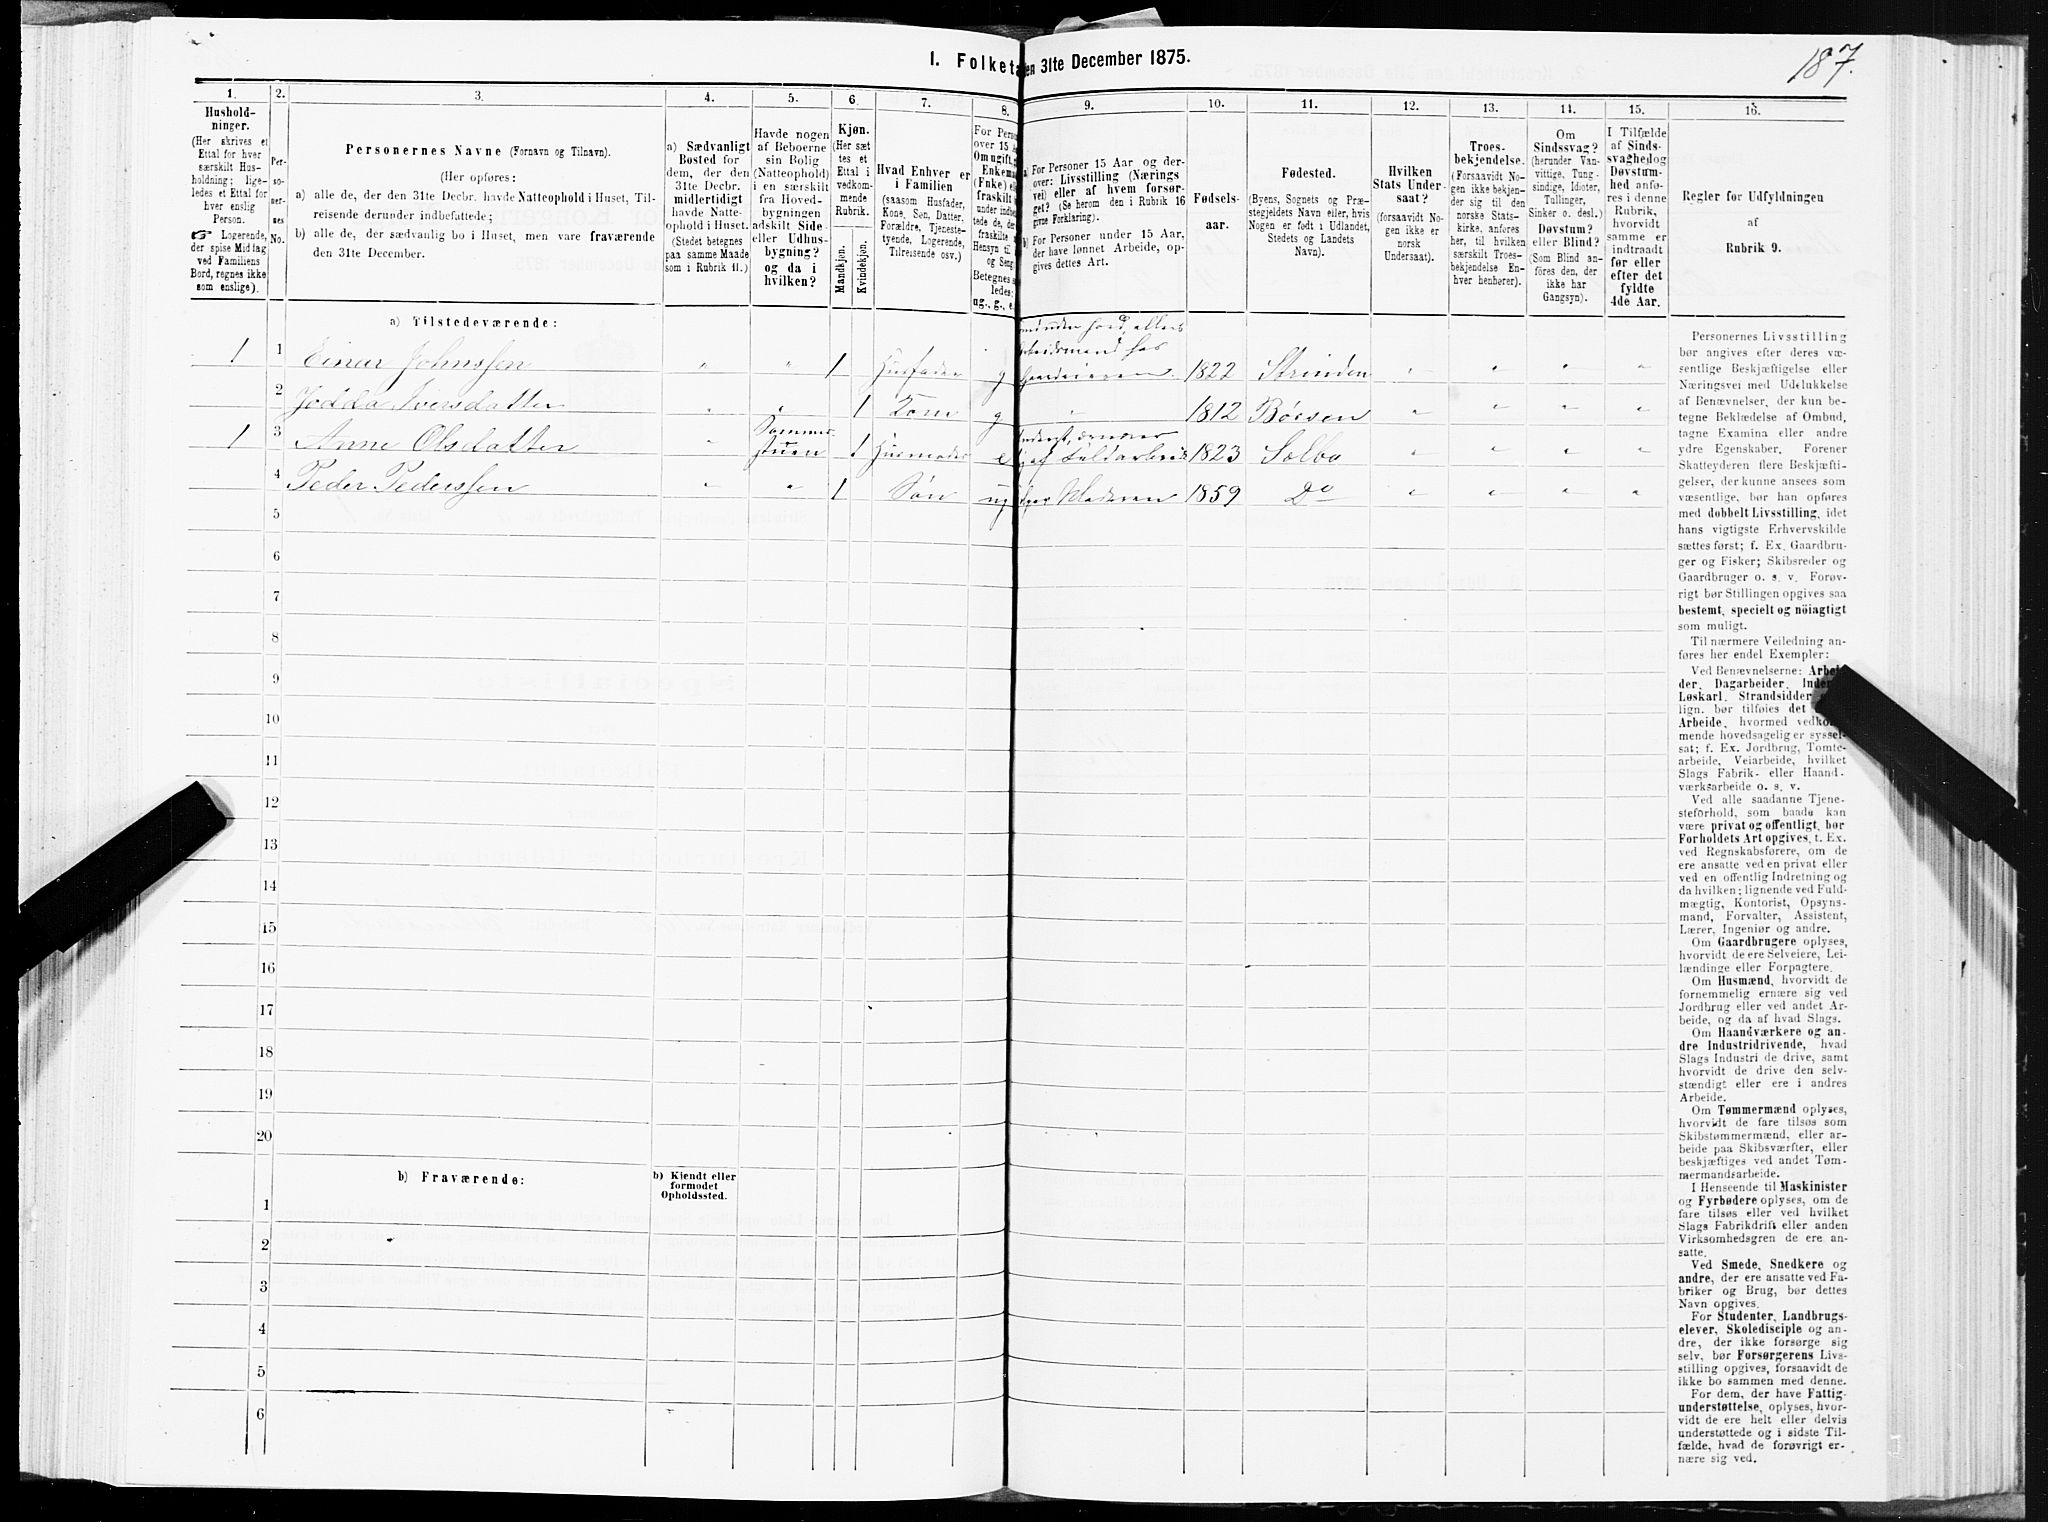 187.
I. Folketæ en 31te December 1875.
1.
2.
3.
4.
5.
6.
7.
8.
9.
10.
11.
12.
13.
14.
15.
16.
Hushold-
ninger.
(Her skrives et
Ettal for hver
særskilt Hus-
holdning; lige-
ledes et Ettal for
hver enslig
Person.
☞ Logerende,
der spise Middag
ved Familiens
Bord, regnes ikke
som enslige).
Per-
so-
ner-
nes
No.
Personernes Navne (Fornavn og Tilnavn).
(Her opføres:
a) alle de, der den 31te Decbr. havde Natteophold i Huset, Til-
reisende derunder indbefattede;
b) alle de, der sædvanlig bo i Huset, men vare fraværende
den 31te December.
a) Sædvanligt
Bosted for
dem, der den
31te Decbr.
midlertidigt
havde Natte-
ophold i Huset.
(Stedet betegnes
paa samme Maade
som i Rubrik 11.)
Havde nogen
af Beboerne
sin Bolig
(Natteophold)
i en særskilt
fra Hoved-
bygningen
adskilt Side-
eller Udhus-
bygning?
og da i
hvilken?
Kjøn.
(Her sæt
tes et
Ettal i
vedkom-
mende
Rubrik.
Mandkjøn.
Kvindekjøn.
Hvad Enhver er
i Familien
(saasom Husfader,
Kone, Søn, Datter,
Forældre, Tjeneste-
tyende, Logerende,
Tilreisende osv.)
For Perso
over 15 A
Om ugift, g
Enkema
(Fnke) el
fraskilt
under indb
tede de,
fraskilte
Hensyn ti
og Seng.
Betegnes s
ledes:
ug., g., e.
a) For Personer 15 Aar og der-
over: Livsstilling (Nærings
vei) eller af hvem forsør-
get? (Se herom den i Rubrik 16
givne Forklaring).
b) For Personer under 15 Aar,
der have lønnet Arbeide, op-
gives dettes Art.
Fødsels-
aar.
Fødested.
(Byens, Sognets og Præ-
stegjeldets Navn eller, hvis
Nogen er født i Udlandet,
Stedets og Landets
Navn).
Hvilken
Stats Under-
saat?
(forsaavidt No-
gen ikke er
norsk
Undersaat).
Troes-
bekjendelse.
(Forsaavidt No-
gen ikke bekjen-
der sig til den
norske Stats-
kirke, anføres
her, til hvilken
særskilt Troes-
bekjendelse En-
hver henhører).
Om
Sindssvag?
(herunder Van-
vittige, Tung-
sindige, Idioter,
Tullinger,
Sinker o. desl.)
Døvstum?
eller Blind?
(Som Blind an-
føres den, der
ikke har
Gangsyn).
I Tilfælde
af Sinds-
svaghed og
Døvstum-
hed anfø-
res i denne
Rubrik,
hvorvidt
samme er
indtraadt
før eller
efter det
fyldte
4de Aar.
Regler for Udfyldningen
af
Rubrik 9.
a) Tilstedeværende:
1 1 Einar Johnssen " " 1 Husfader g Arbeidsmand hos Gaardeieren 1822 Strinden " " " "
2 Jødda Iversdatter " " 1 Kone g " 1812 Børsen " " " "
1 3 Anne Olsdatter " Sommer-
stuen 1 Husmoder e af Feldarbeide 1823 Selbo " " " "
4 Peder Pederssen " " 1 Søn ug Moderen 1859 Do " " " "
5
6
7
8
9
10
11
12
13
14
15
16
17
18
19
20
b) Fraværende:
b) Kjendt eller
formodet
Opholdssted.
1
2
3
4
5
6
Personernes Livsstilling
bør angives efter deres væ-
sentlige Beskjæftigelse eller
Næringsvei med Udelukkelse
af Benævnelser, der kun be-
tegne Beklædelse af Ombud,
tagne Examina eller andre
ydre Egenskaber. Forener
Skatteyderen flere Beskjæfti-
gelser, der kunne ansees som
væsentlige, bør han opføres
med dobbelt Livsstilling, idet
hans vigtigste Erhvervskilde
sættes først; f. Ex. Gaardbru-
ger og Fisker; Skibsreder og
Gaardbruger o. s. v. Forøv-
rigt bør Stillingen opgives saa
bestemt, specielt og nöiagtigt
som muligt.
Til nærmere Veiledning an-
føres her endel Exempler:
Ved Benævnelserne: Arbei-
der, Dagarbeider, Inder
Løskarl, Strandsidder
lign. bør tilføies det
Arbeide, hvormed vedkom-
mende hovedsagelig er syssel-
sat; f. Ex. Jordbrug, Tomte-
arbeide, Veiarbeide, hvilket
Slags Fabrik- eller Haand-
værksarbeide o. s. v.
Ved alle saadanne Tjene-
steforhold, som baade kan
være privat og offentligt, bør
Forholdets Art opgives, t. Ex.
ved Regnskabsførere, om de
ere ansatte ved en privat eller
ved en offentlig Indretning og
da hvilken; lignende ved Fuld-
mægtig, Kontorist, Opsyns-
mand, Forvalter, Assistent,
Lærer, Ingeniør og andre.
Om Gaardbrugere oplyses,
hvorvidt de ere Selveiere, Lei-
lændinge eller Forpagtere.
Om Husmænd, hvorvidt de
fornemmelig ernære sig ved
Jordbrug eller ved andet Ar-
beide, og da af hvad Slags.
Om Haandværkere og an-
dre Industridrivende, hvad
Slags Industri de drive, samt
hvorvidt de drive den selv-
stændigt eller ere i andres
Arbeide.
Om Tømmermænd oplyses,
hvorvidt de fare tilsøs som
Skibstømmermænd, eller ar-
beide paa Skibsværfter, eller
beskjæftiges ved andet Tøm-
mermandsarbeide.
I Henseende til Maskinister
og Fyrbødere oplyses, om de
fare tilsøs eller ved hvilket
Slags Fabrikdrift eller anden
Virksomhedsgren de ere an-
satte.
Ved Smede, Snedkere og
andre, der ere ansatte ved Fa-
briker og Brug, bør dettes
Navn opgives.
For Studenter, Landbrugs-
elever, Skoledisciple og an-
dre, der ikke forsørge sig
selv, bør Forsørgerens Livs-
stilling opgives, forsaavidt de
ikke bo sammen med denne.
For dem, der have Fattig-
understøttelse, oplyses, hvor-
vidt de ere helt eller delvis
understøttede og i sidste Til-
fælde, hvad de forøvrigt er-
nære sig ved.